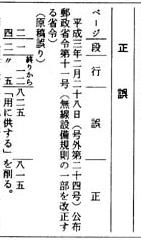 正誤
ページ 段 行 誤 正
平成三年二月二十八日(号外第二十四号)公布
郵政省令第十一号(無線設備規則の一部を改正す
る省令)
(原稿誤り)
二一 一 終りから二 八二五 八一五
四二 〃 五 「用に供する」を削る。